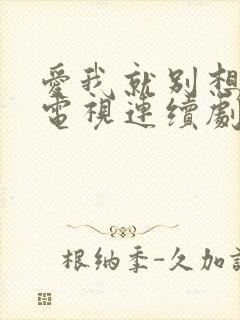 愛我就别想
電視連續劇
根納季-久加諾